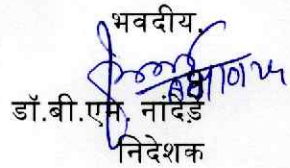 भवदीय,
डॉ.बी.एम. नांदेडे
निदेशक